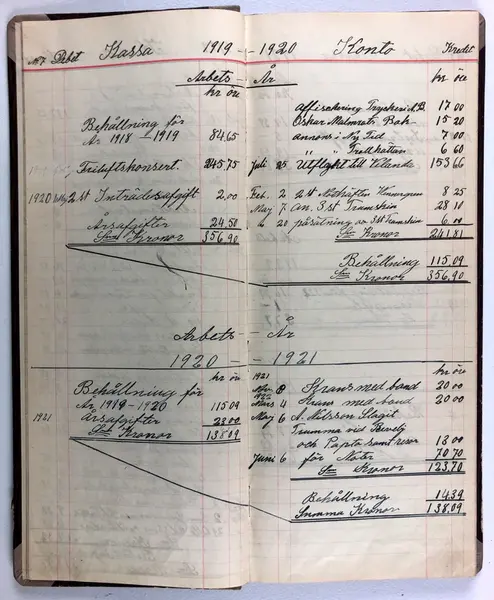 Debet Kassa 1919 - - 1920 Konto Kredit
Arbets - År
kr öre
kr öre
Behållning för
År 1918 - 1919 84.65
Friluftskonsert. 245.75
1920 2 st Inträdesafgift 2,00
Årsafgifter 24,50
Sum Kronor 356,90
Affischering Tryckeri A.B. 17 00
Oskar Malmrots Bok. 15 20
annons i Ny Tid 7 00
" " Trollhättan 6 60
Juli 25 Utflykt till 153 66
Feb. 2 2 st Nothäften 8 25
May 7 an. 3 st 28 10
" 20 av 3 st 6 00
Sm Kronor 241.81
Behållning 115 09
Sm Kronor 356,90
Arbets - År
1920 - - 1921
kr öre
Behållning för
År 1919 - 1920 115 09
1921 Årsafgifter 23 00
Sum Kronor 138 09
1921 kr öre
Nov. 8 Krans med band 20 00
Mars 4 Krans med band 20 00
May 6 A. Nilsson Slagit
Trumma vid
och samt resor 13 00
Juni 6 för Noter 70 70
Sm Kronor 123,70
Behållning 14 39
Summa Kronor 138 09